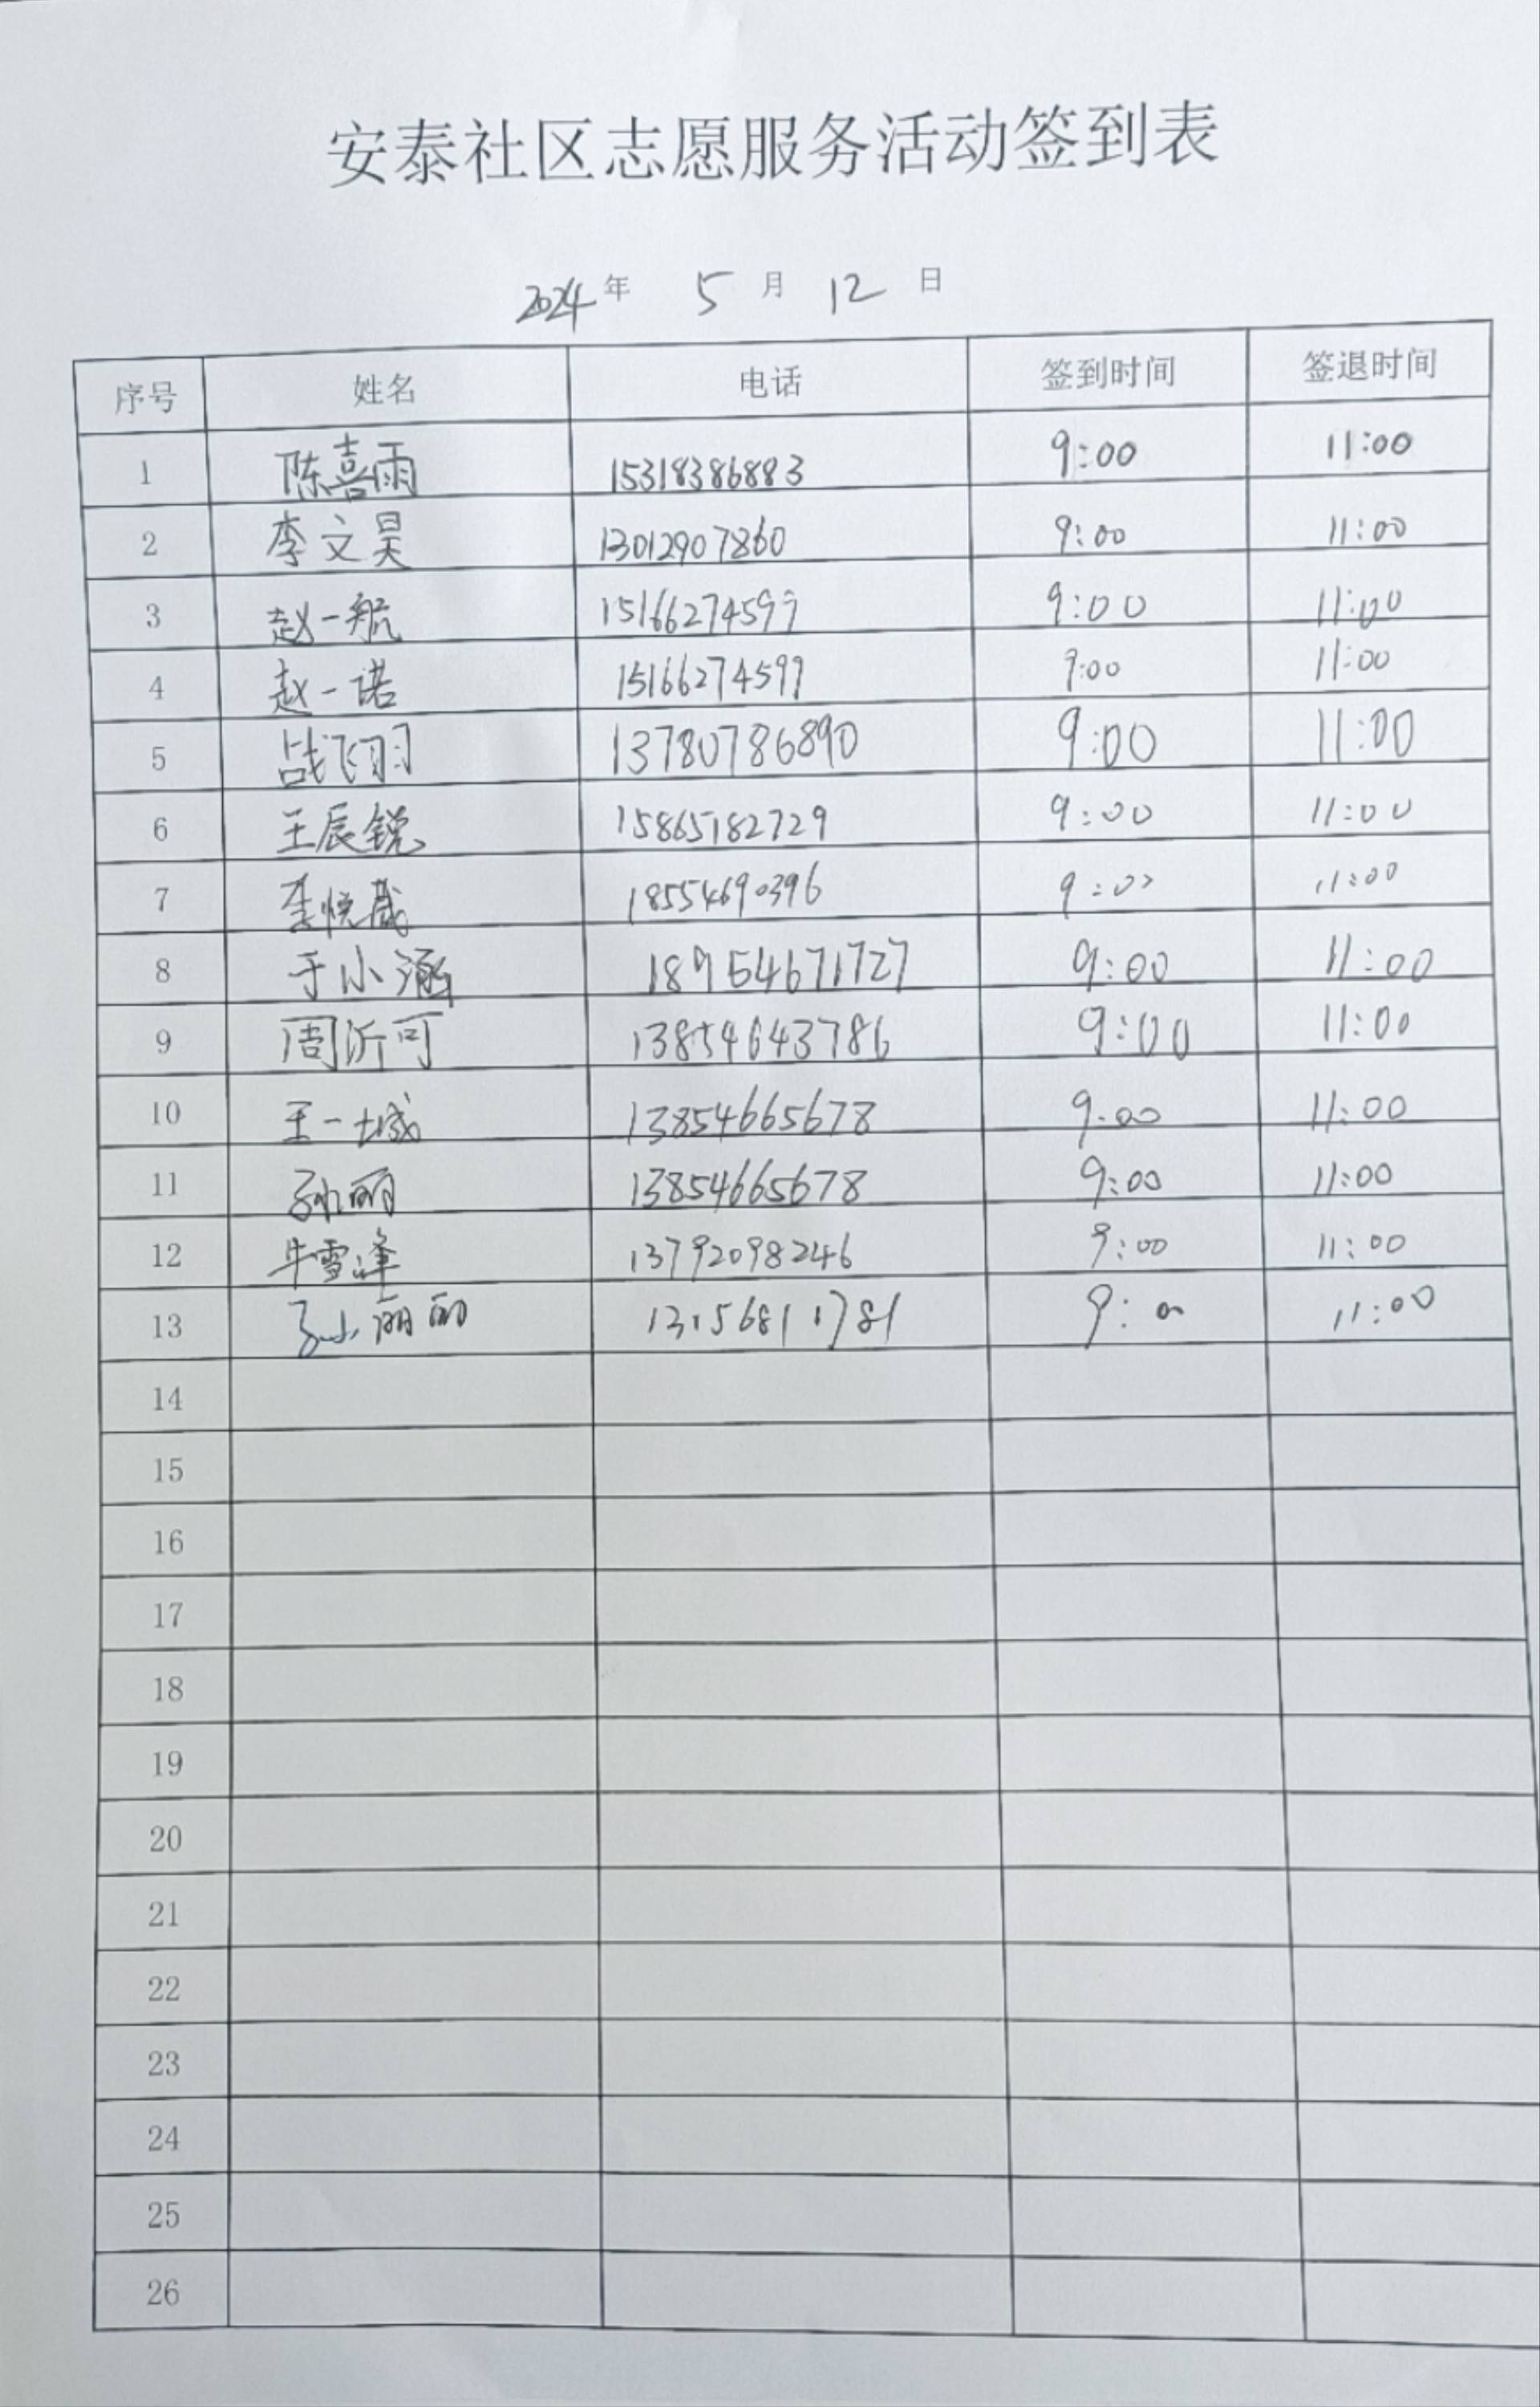 安泰社区志愿服务活动签到表
2024年 5月 12日
序号 姓名 电话 签到时间 签退时间
1 陈喜雨 15318386883 9:00 11:00
2 李文昊 13012907860 9:00 11:00
3 赵一航 15166274599 9:00 11:00
4 赵一诺 15166274599 9:00 11:00
5 战飞羽 13780786890 9:00 11:00
6 王辰锐 15865182729 9:00 11:00
7 李悦葳 18554690396 9:00 11:00
8 于小涵 18954671727 9:00 11:00
9 周沂可 13854643786 9:00 11:00
10 王一城 13854665678 9:00 11:00
11 孙丽 13854665678 9:00 11:00
12 牛雪峰 13792098246 9:00 11:00
13 孙丽丽 13156811781 9:00 11:00
14
15
16
17
18
19
20
21
22
23
24
25
26